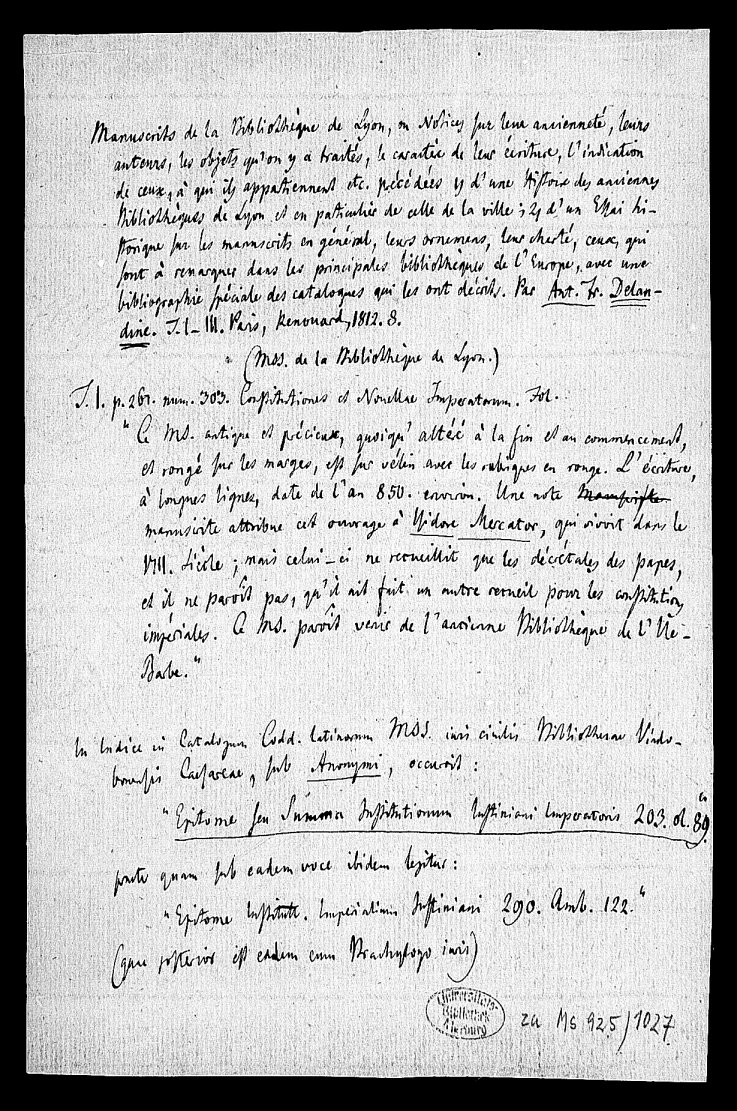 Manuscrits de la Bibliothèque de Lyon, ou Notices sur leur ancienneté, leurs
auteurs, les objets qu'on y a traités, le caractère de leur écriture, l'indication
de ceux, à qui ils appartiennent etc. précédées 1) d'une Histoire des anciennes
Bibliothèques de Lyon et en particulier de celle de la ville; 2) d'un Essai hi-
storique sur les manuscrits en général, leurs ornemens, leur cherté, ceux, qui
sont à remarquer dans les principales bibliothèques de l'Europe, avec une
bibliographie spéciale des catalogues qui les ont décrits. Par Ant. Fr. Delan-
dine. T. I–III. Paris, Renouard, 1812. 8.
(Mss. de la Bibliothèque de Lyon.)
T. I. p. 261. num. 303. Constitutiones et Novellae Imperatorum. Fol.
"Ce MS. antique et précieux, quoiqu' altéré à la fin et au commencement,
et rongé sur les marges, est sur vélin avec les rubriques en rouge. L'écriture,
à longues lignes, date de l'an 850. environ. Une note
manuscrite attribue cet ouvrage à Isidore Mercator, qui vivoit dans le
VIII. siècle; mais celui-ci ne recueillit que les décrétales des papes,
et il ne paroît pas, qu'il ait fait un autre recueil pour les constitutions
impériales. Ce MS. paroît venir de l'ancienne Bibliothèque de l'Ile-
Barbe."
In Indice in Catalogum Codd. latinorum MSS. iuris civilis Bibliothecae Vindo-
bonensis Caesareae, sub Anonymi, occurrit:
"Epitome seu Summa Institutionum Iustiniani Imperatoris 203. ol. 89."
praeter quam sub eadem voce ibidem legitur:
"Epitome Institutt. Imperialium Iustiniani 290. Amb. 122."
(quae posterior est eadem cum Brachylogo iuris)
Universitäts-
Bibliothek
Marburg
za Ms 925/1027